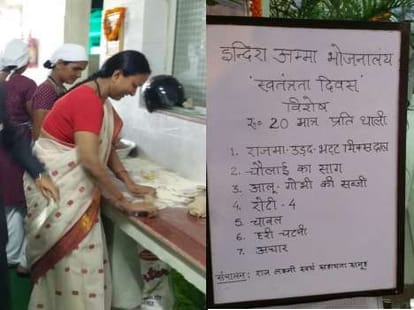 इन्दिरा अम्मा भोजनालय
'स्वतंत्रता दिवस'
विशेष
रु० 20 मात्र प्रति थाली
1. राजमा-उड़द-भट्ट मिक्स दाल
2. चौलाई का साग
3. आलू-गोभी की सब्जी
4. रोटी - 4
5. चावल
6. हरी-चटनी
7. अचार
संचालन: राज लक्ष्मी स्वयं सहायता समूह